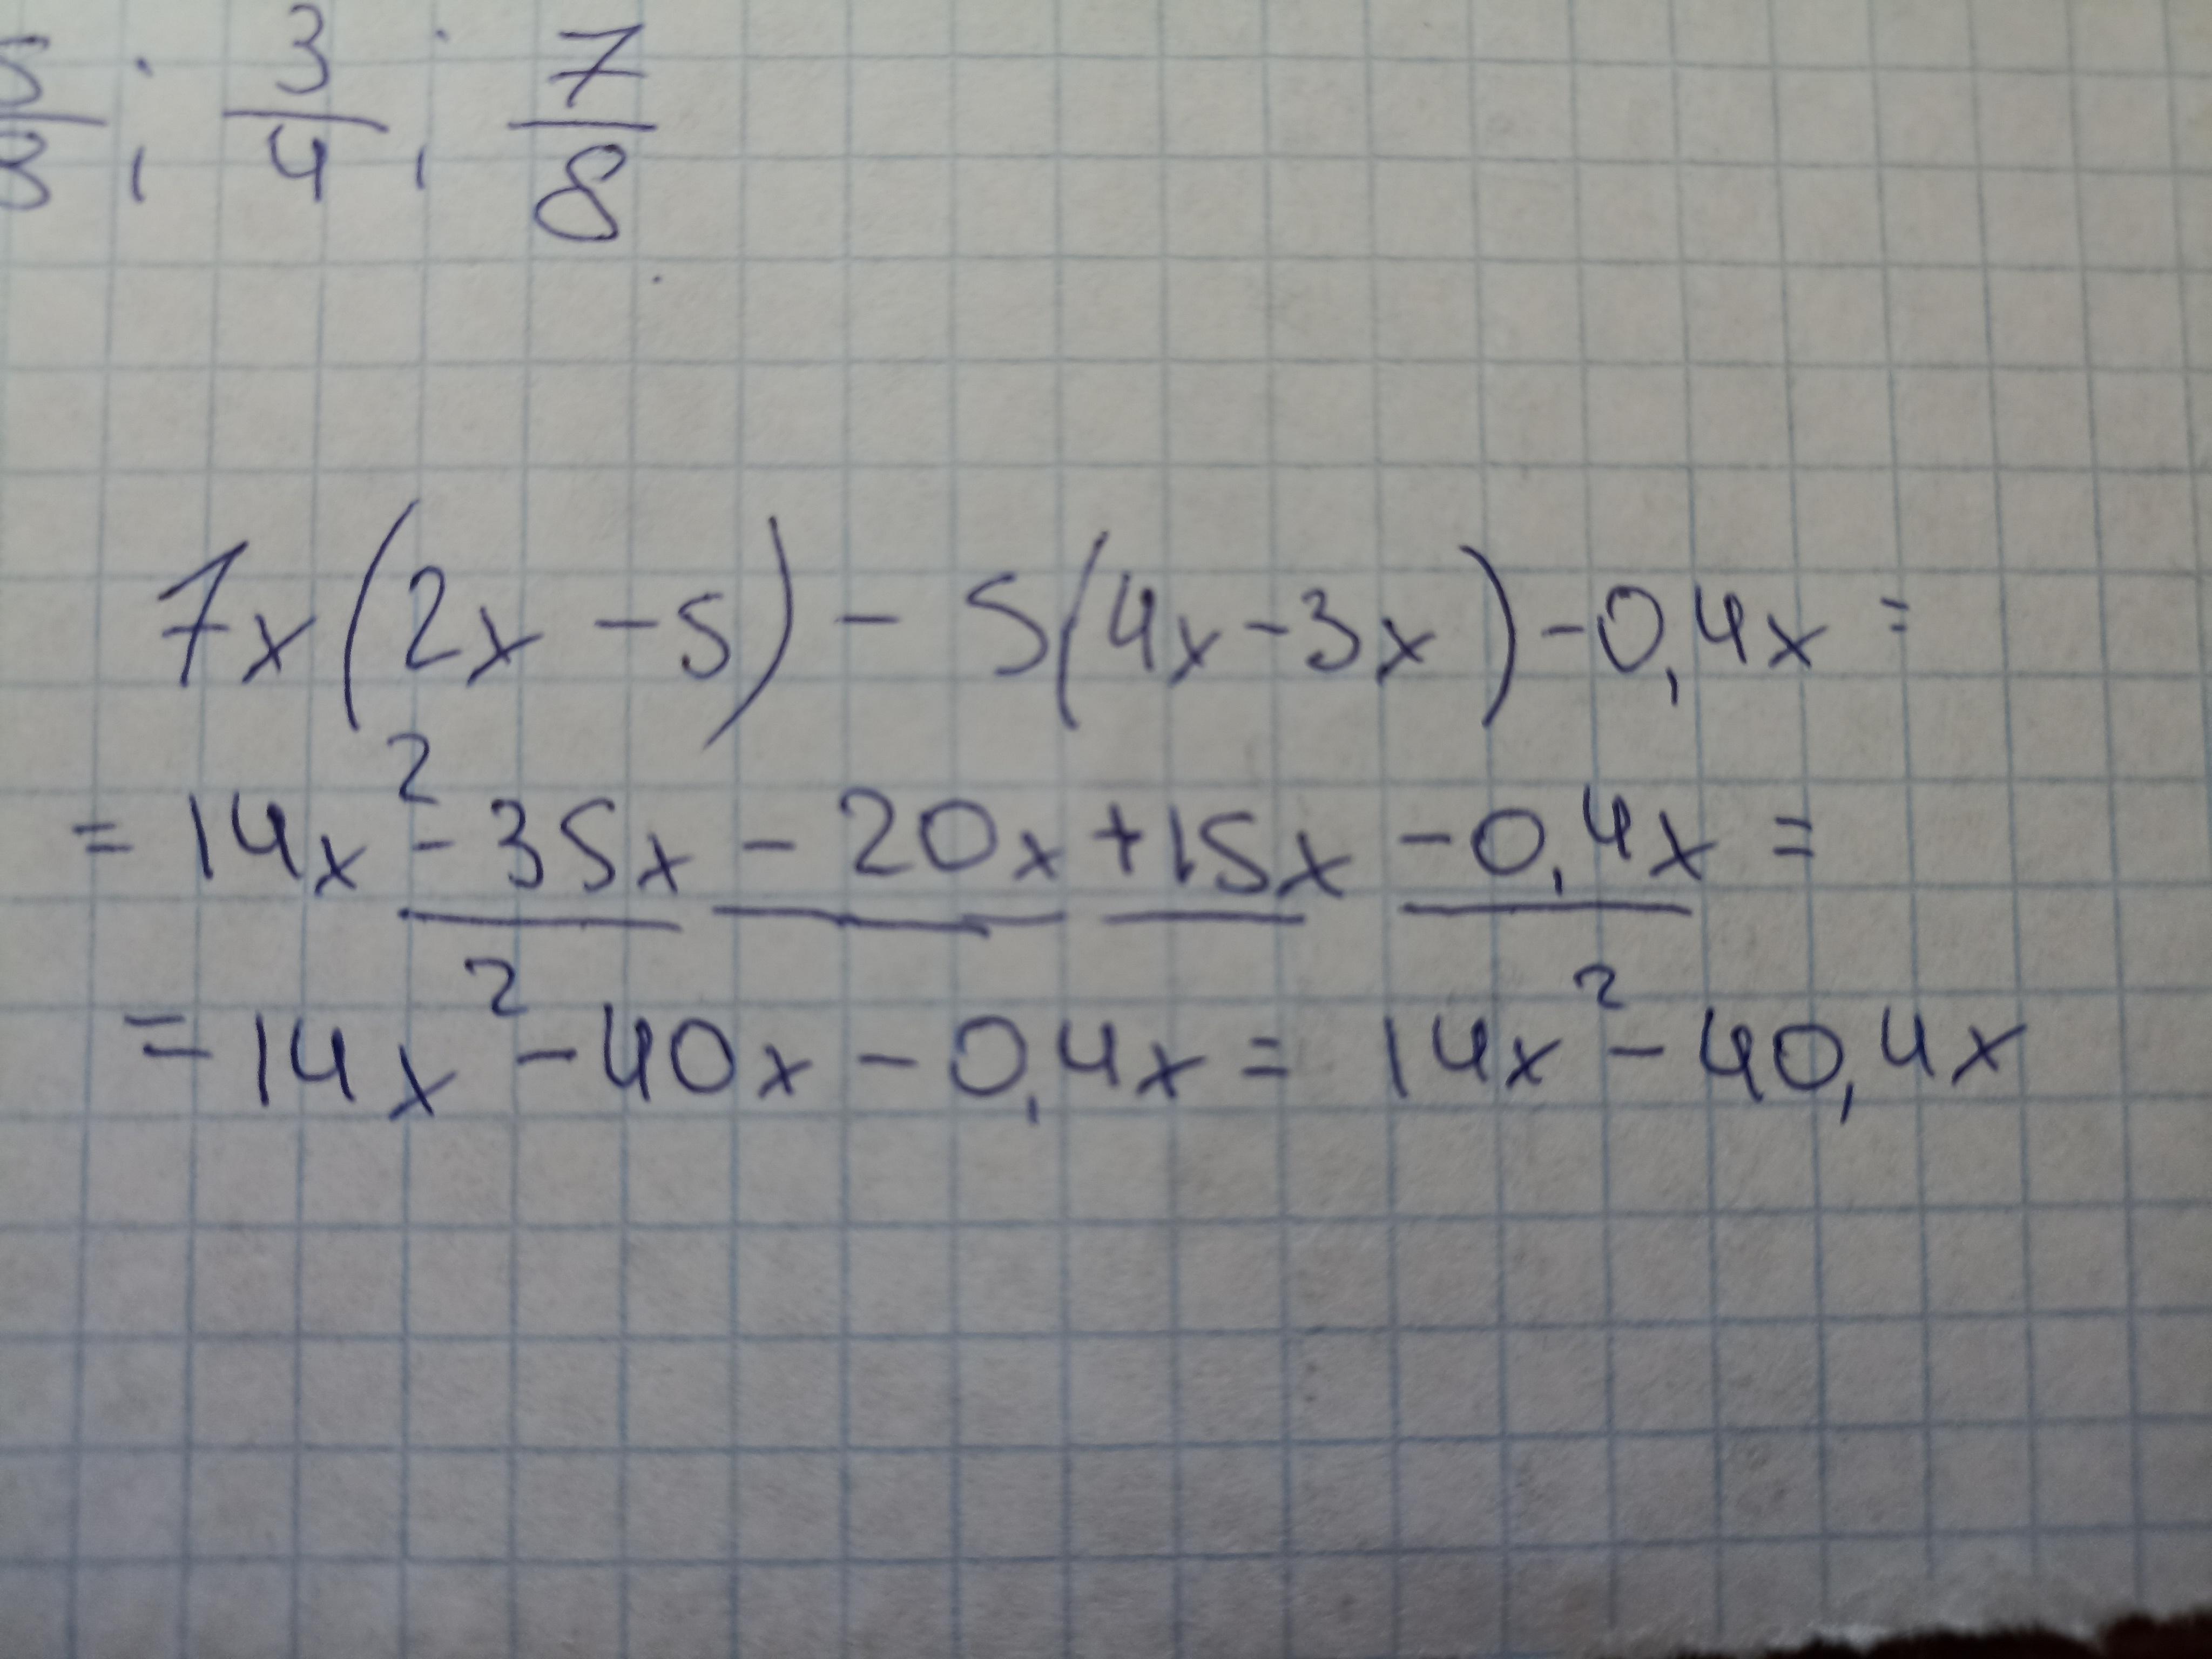 5/8 ; 3/4 ; 7/8
7x(2x-5)-5(4x-3x)-0,4x=
=14x²-35x-20x+15x-0,4x=
=14x²-40x-0,4x=14x²-40,4x